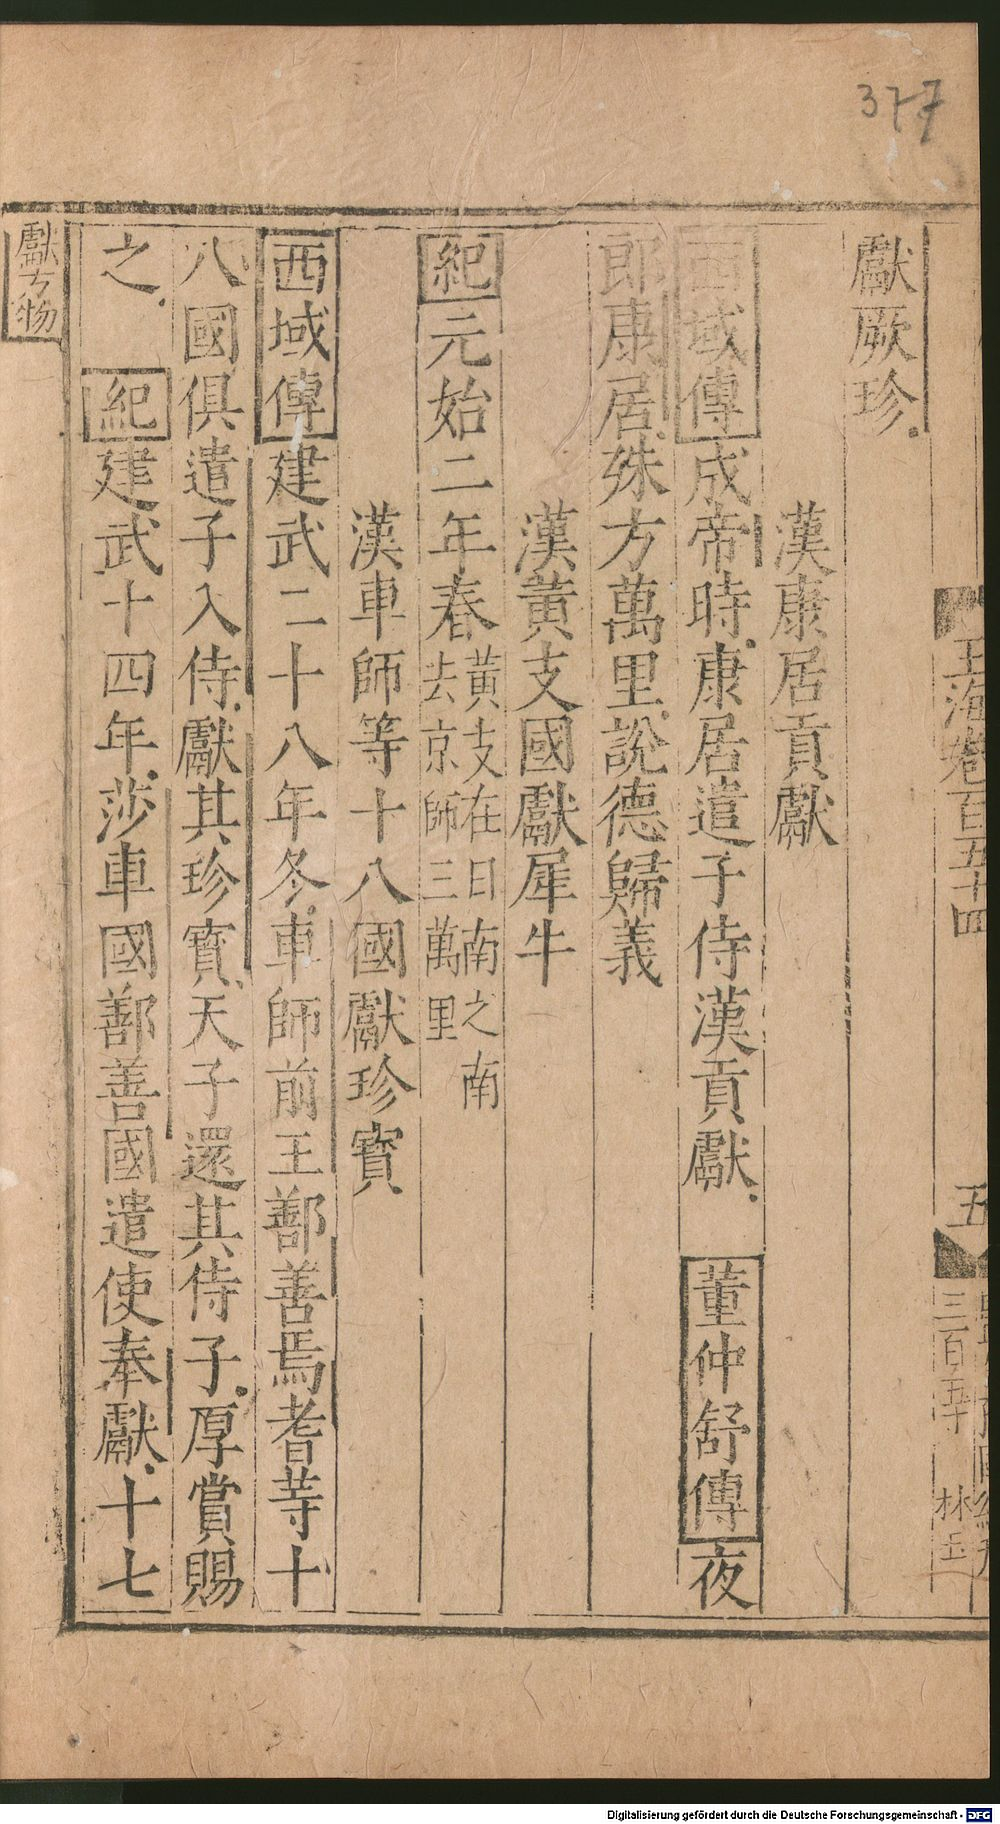 377
玉海卷百五十四
五
三百五十
林
獻厥珍
漢康居貢獻
西域傳成帝時康居遣子侍漢貢獻 董仲舒傳夜
郎康居殊方萬里說德歸義
漢黃支國獻犀牛
紀元始二年春黃支在日南之南去京師三萬里
漢車師等十八國獻珍寳
西域傳建武二十八年冬車師前王鄯善焉耆等十
八國俱遣子入侍獻其珍寳天子還其侍子厚賞賜
之 紀建武十四年莎車國鄯善國遣使奉獻十七
獻方物
Digitalisierung gefördert durch die Deutsche Forschungsgemeinschaft - DFG